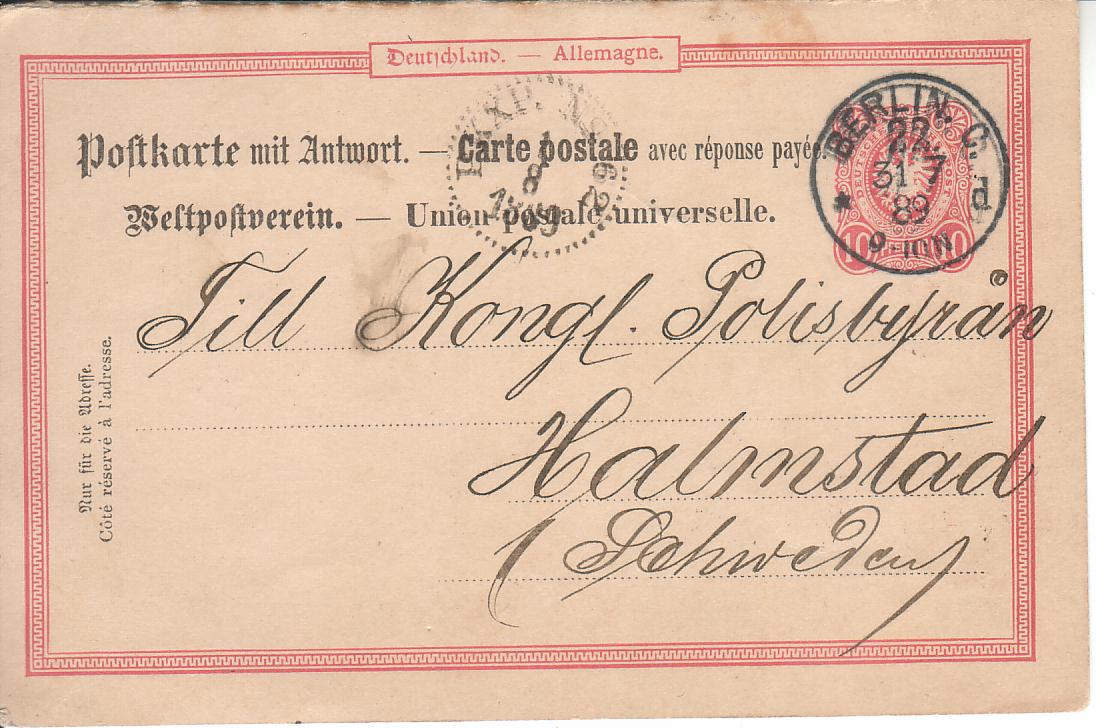 Deutschland. — Allemagne.
Postkarte mit Antwort. — Carte postale avec réponse payée.
Weltpostverein. — Union postale universelle.
BERLIN. C.
22.
31 7
89
9-10N
* d
10 10
PXP. No
1
8
1889
Till Kongl. Polisbyrån
Halmstad
(Schweden)
Nur für die Adresse.
Côté réservé à l'adresse.